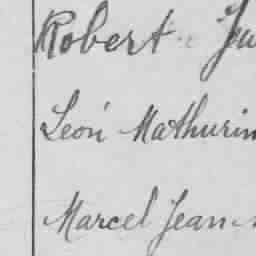 Robert
Léon Mathurin
Marcel Jean